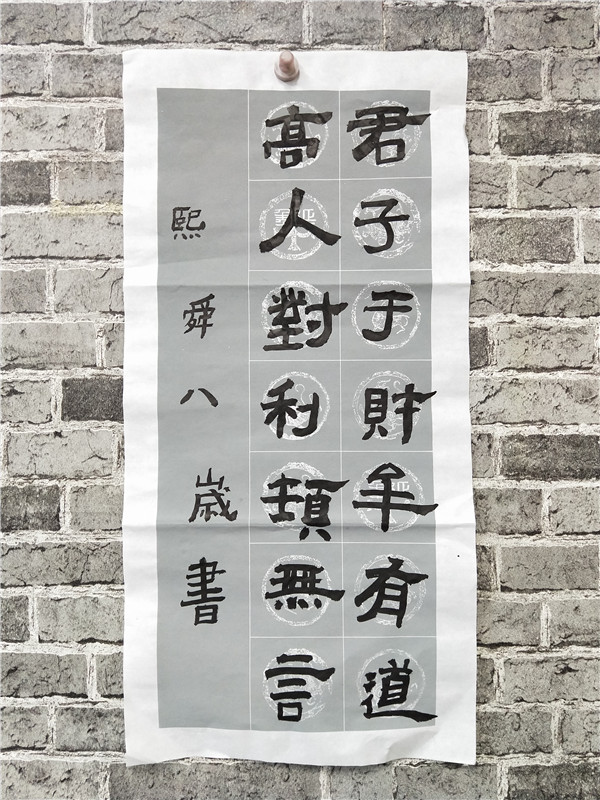 君子于財牟有道
高人對利頓無言
熙舜八歲書